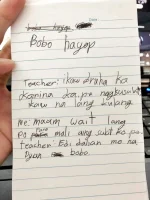 Bobo hayop
Teacher: ikaw araha ka
kanina ka pa nagbusulat
ikaw na lang kulang
Me: maam wait lang
po mali ang sulat ko pa
teacher: Edi dalian mo na
Dyan bobo